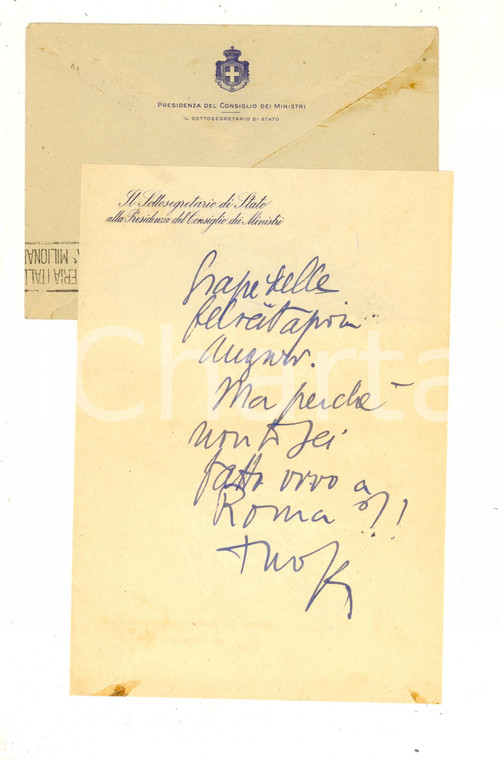 PRESIDENZA DEL CONSIGLIO DEI MINISTRI
IL SOTTOSEGRETARIO DI STATO
Il Sottosegretario di Stato
alla Presidenza del Consiglio dei Ministri
ERIA ITALI
MILIONA
Grazie delle
felicitazioni
Auguri.
Ma perché
non ti sei
fatto vivo a
Roma?!
tuo
Charta